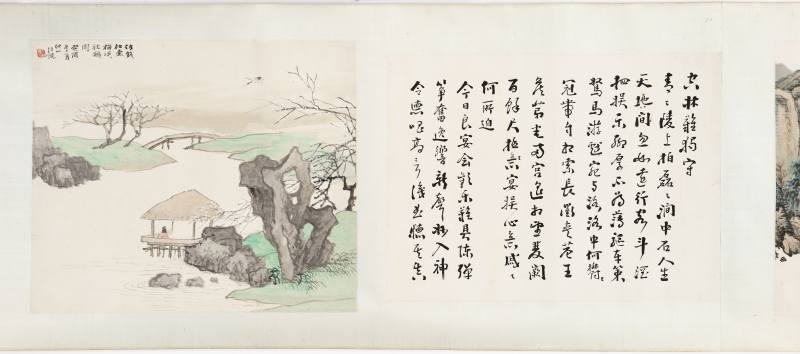 空牀難獨守
青〻陵上柏磊〻澗中石人生
天地間忽如遠行客斗酒
相娛樂聊厚不為薄驅車策
駑馬游戲宛與洛洛中何鬱〻
冠帶自相索長衢夾巷王
兩宮遙相望雙闕
百餘尺極宴娛心意戚〻
何所迫
今日良宴會歡樂難具陳彈
箏奮逸響新聲妙入神
令德唱高言識曲聽其真
仿錢
松壺
梅溪
放鶴
圖